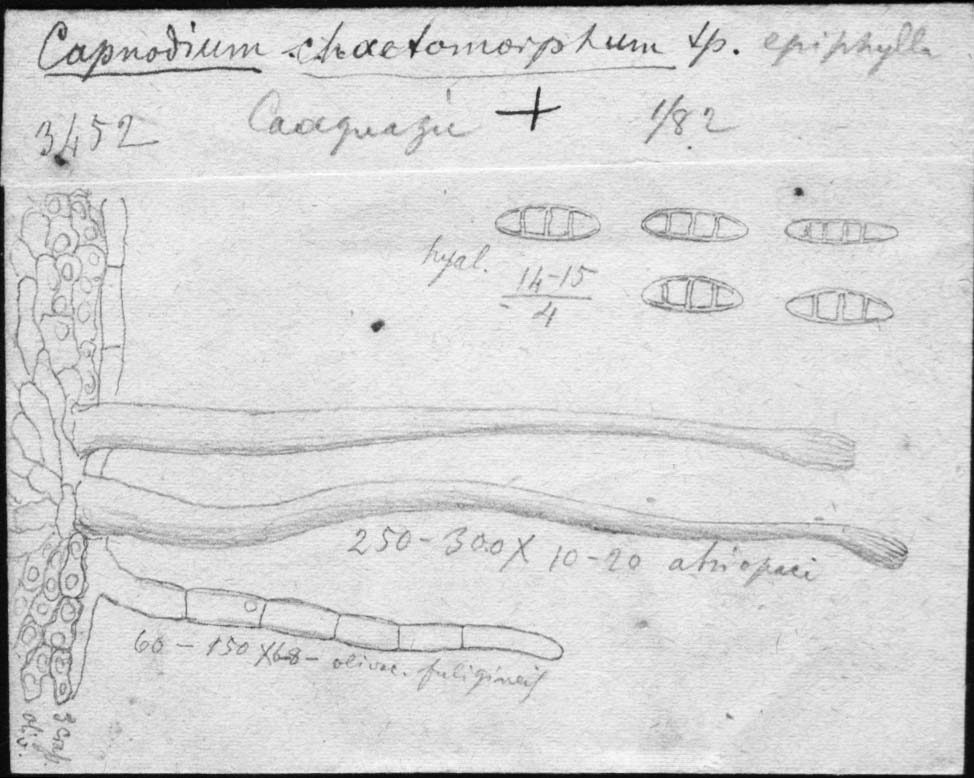 Capnodium chaetomorphum sp. epiphylla
3452 Caaguazú + 1/82
hyal. 14-15
4
250-300 X 10-20 atriopaci
60-150 X 6-8- olivac. fuligineis
oliv.